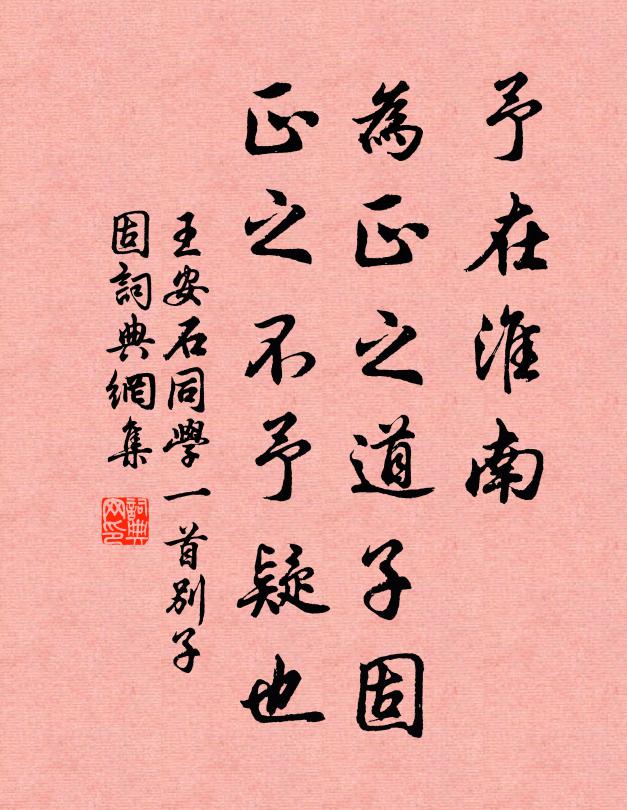 予在淮南
為正之道子固
正之不予疑也
王安石同學一首別子
固詞典網集
詞典
网印